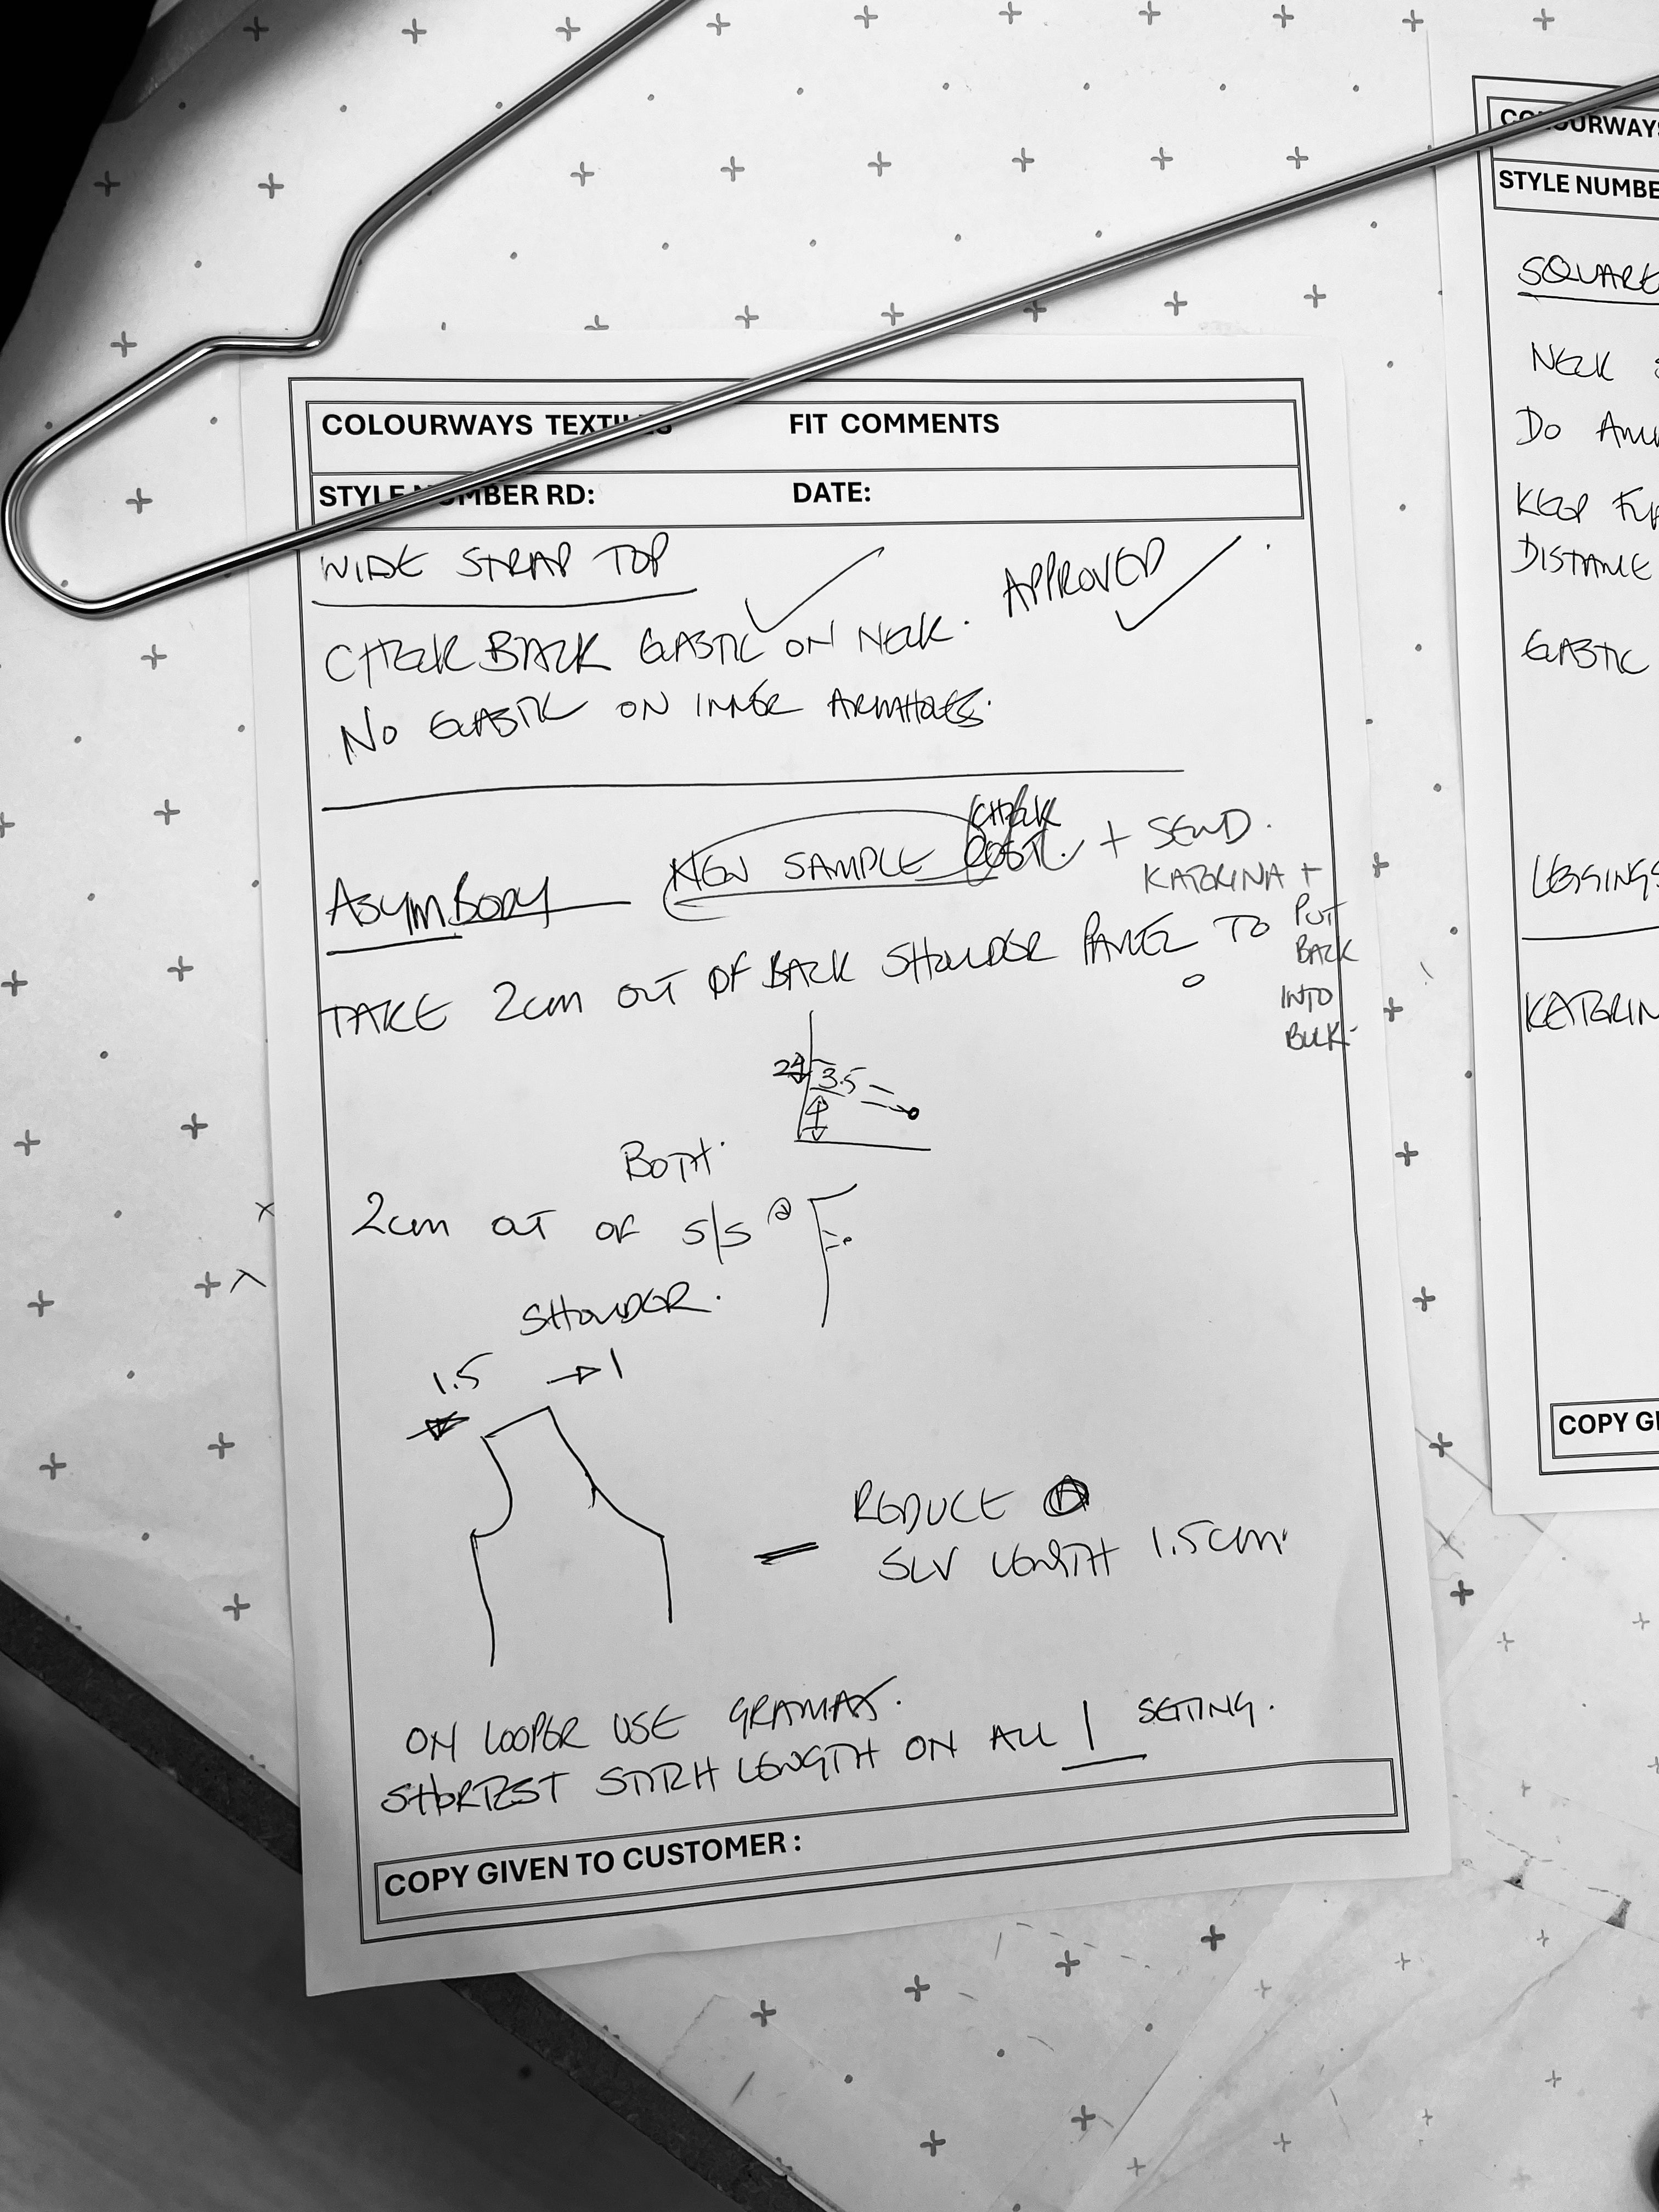 COLOURWAYS TEXTILES FIT COMMENTS
STYLE NUMBER RD: DATE:
WIDE STRAP TOP
APPROVED
CHECK BACK ELASTIC ON NECK.
NO ELASTIC ON INNER ARMHOLES.
ASYM BODY NEW SAMPLE CHECK COST. + SEND.
KATERINA +
PUT
BACK
INTO
BULK.
TAKE 2cm OUT OF BACK SHOULDER PANEL TO
0
2 3.5
4
BOTH.
2cm OUT OF S/S @
SHOULDER.
1.5 → 1
REDUCE
SLV LENGTH 1.5cm.
ON LOOPER USE GRAMAX.
SHORTEST STITCH LENGTH ON ALL 1 SETTING.
COPY GIVEN TO CUSTOMER :
COLOURWAYS
STYLE NUMBE
SQUARE
NECK
DO
KEEP
DISTANCE
ELASTIC
LEGGINGS
KATERIN
COPY GI